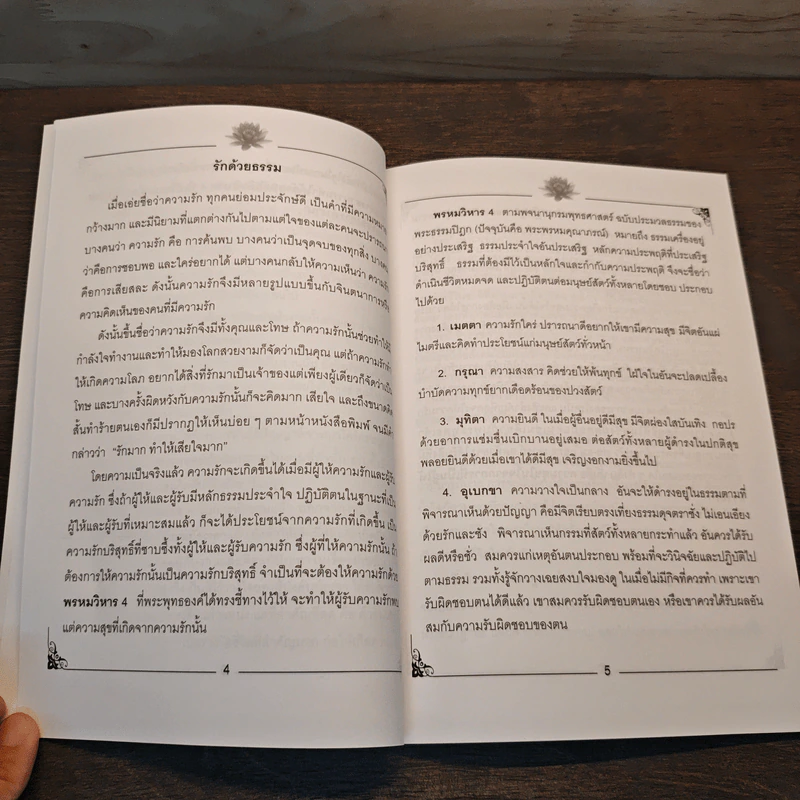 รักด้วยธรรม
เมื่อเอ่ยชื่อว่าความรัก ทุกคนย่อมประจักษ์ดี เป็นคำที่มีความหมาย
กว้างมาก และมีนิยามที่แตกต่างกันไปตามแต่ใจของแต่ละคนจะปรารถนา
บางคนว่า ความรัก คือ การค้นพบ บางคนว่าเป็นจุดจบของทุกสิ่ง บางคน
ว่าคือการชอบพอ และใคร่อยากได้ แต่บางคนกลับให้ความเห็นว่า ความรัก
คือการเสียสละ ดังนั้นความรักจึงมีหลายรูปแบบขึ้นกับจินตนาการหรือ
ความคิดเห็นของคนที่มีความรัก
ดังนั้นขึ้นชื่อว่าความรักจึงมีทั้งคุณและโทษ ถ้าความรักนั้นช่วยทำให้มี
กำลังใจทำงานและทำให้มองโลกสวยงามก็จัดว่าเป็นคุณ แต่ถ้าความรักทำ
ให้เกิดความโลภ อยากได้สิ่งที่รักมาเป็นเจ้าของแต่เพียงผู้เดียวก็จัดว่าเป็น
โทษ และบางครั้งผิดหวังกับความรักนั้นก็จะคิดมาก เสียใจ และถึงขนาดคิด
สั้นทำร้ายตนเองก็มีปรากฏให้เห็นบ่อย ๆ ตามหน้าหนังสือพิมพ์ จนมีคำ
กล่าวว่า "รักมาก ทำให้เสียใจมาก"
โดยความเป็นจริงแล้ว ความรักจะเกิดขึ้นได้เมื่อมีผู้ให้ความรักและผู้รับ
ความรัก ซึ่งถ้าผู้ให้และผู้รับมีหลักธรรมประจำใจ ปฏิบัติตนในฐานะที่เป็น
ผู้ให้และผู้รับที่เหมาะสมแล้ว ก็จะได้ประโยชน์จากความรักที่เกิดขึ้น เป็น
ความรักบริสุทธิ์ที่ซาบซึ้งทั้งผู้ให้และผู้รับความรัก ซึ่งผู้ที่ให้ความรักนั้น ถ้า
ต้องการให้ความรักนั้นเป็นความรักบริสุทธิ์ จำเป็นที่จะต้องให้ความรักด้วย
พรหมวิหาร 4 ที่พระพุทธองค์ได้ทรงชี้ทางไว้ให้ จะทำให้ผู้รับความรักพบ
แต่ความสุขที่เกิดจากความรักนั้น
4
พรหมวิหาร 4 ตามพจนานุกรมพุทธศาสตร์ ฉบับประมวลธรรมของ
พระธรรมปิฎก (ปัจจุบันคือ พระพรหมคุณาภรณ์) หมายถึง ธรรมเครื่องอยู่
อย่างประเสริฐ ธรรมประจำใจอันประเสริฐ หลักความประพฤติที่ประเสริฐ
บริสุทธิ์ ธรรมที่ต้องมีไว้เป็นหลักใจและกำกับความประพฤติ จึงจะชื่อว่า
ดำเนินชีวิตหมดจด และปฏิบัติตนต่อมนุษย์สัตว์ทั้งหลายโดยชอบ ประกอบ
ไปด้วย
1. เมตตา ความรักใคร่ ปรารถนาดีอยากให้เขามีความสุข มีจิตอันแผ่
ไมตรีและคิดทำประโยชน์แก่มนุษย์สัตว์ทั่วหน้า
2. กรุณา ความสงสาร คิดช่วยให้พ้นทุกข์ ใฝ่ใจในอันจะปลดเปลื้อง
บำบัดความทุกข์ยากเดือดร้อนของปวงสัตว์
3. มุทิตา ความยินดี ในเมื่อผู้อื่นอยู่ดีมีสุข มีจิตผ่องใสบันเทิง กอปร
ด้วยอาการแช่มชื่นเบิกบานอยู่เสมอ ต่อสัตว์ทั้งหลายผู้ดำรงในปกติสุข
พลอยยินดีด้วยเมื่อเขาได้ดีมีสุข เจริญงอกงามยิ่งขึ้นไป
4. อุเบกขา ความวางใจเป็นกลาง อันจะให้ดำรงอยู่ในธรรมตามที่
พิจารณาเห็นด้วยปัญญา คือมีจิตเรียบตรงเที่ยงธรรมดุจตราชั่ง ไม่เอนเอียง
ด้วยรักและชัง พิจารณาเห็นกรรมที่สัตว์ทั้งหลายกระทำแล้ว อันควรได้รับ
ผลดีหรือชั่ว สมควรแก่เหตุอันตนประกอบ พร้อมที่จะวินิจฉัยและปฏิบัติไป
ตามธรรม รวมทั้งรู้จักวางเฉยสงบใจมองดู ในเมื่อไม่มีกิจที่ควรทำ เพราะเขา
รับผิดชอบตนได้ดีแล้ว เขาสมควรรับผิดชอบตนเอง หรือเขาควรได้รับผลอัน
สมกับความรับผิดชอบของตน
5